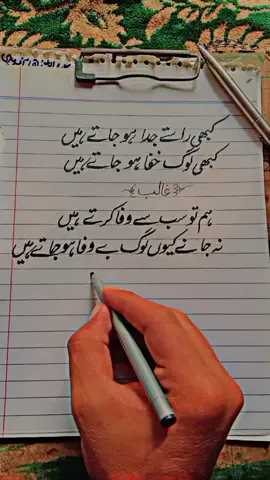 کبھی راستے جدا ہو جاتے ہیں
کبھی لوگ خفا ہو جاتے ہیں
غالب
ہم تو سب سے وفا کرتے ہیں
نہ جانے کیوں لوگ بے وفا ہو جاتے ہیں